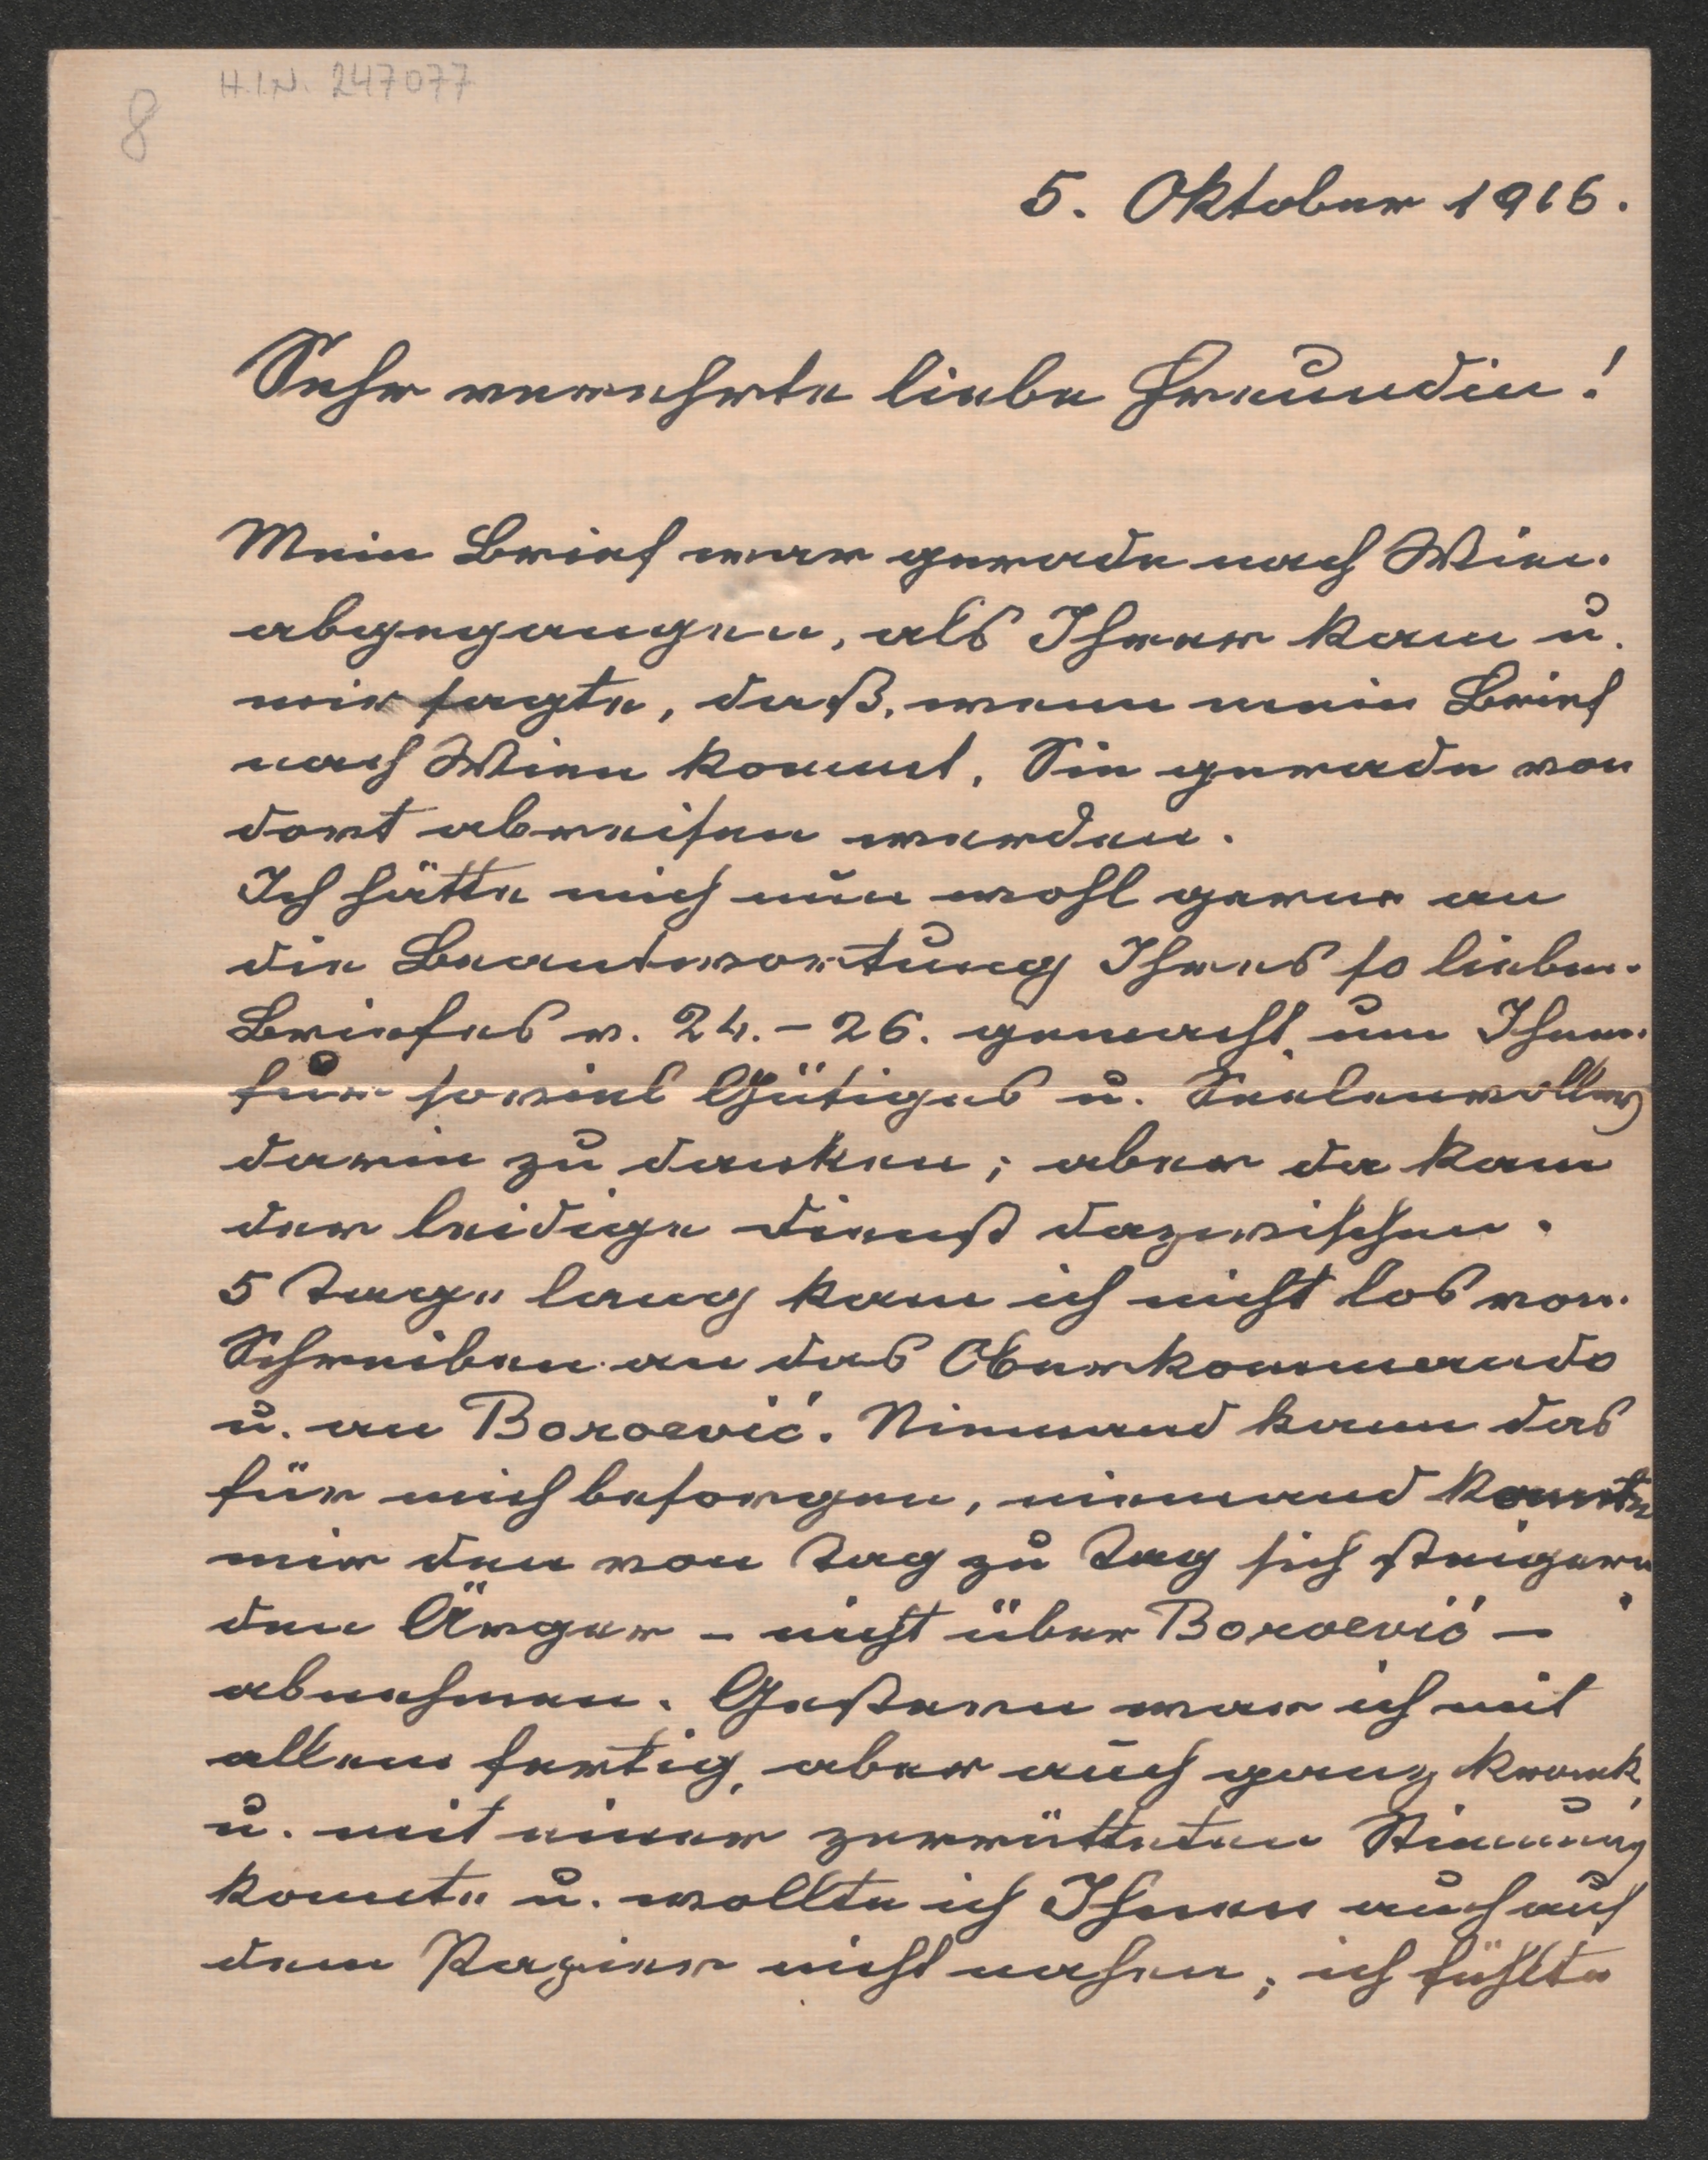 H.I.N. 247077
8
5. Oktober 1916.
Sehr verehrte liebe Freundin!
Mein Brief war gerade nach Wien
abgegangen, als Ihrer kam u.
mir sagte, daß, wenn mein Brief
nach Wien kommt, Sie gerade von
dort abreisen werden.
Ich hätte mich nun wohl gerne an
die Beantwortung Ihres so lieben
Briefes v. 24.-26. gemacht, um Ihnen
für soviel Gütiges u. Seelenvolles
darin zu danken; aber da kam
der leidige Dienst dazwischen.
5 Tage lang kam ich nicht los von
Schreiben an das Oberkommando
u. an Boroević. Niemand kann das
für mich besorgen, niemand konnte
mir den von Tag zu Tag sich steigern
den Ärger – nicht über Boroević –
abnehmen. Gestern war ich mit
allem fertig, aber auch ganz krank,
u. mit einer zerrütteten Stimmung
konnte u. wollte ich Ihnen auch auf
dem Papier nicht nahen; ich fühlte